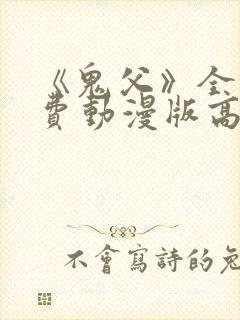 《鬼父》全
費動漫版高
不會寫詩的兔